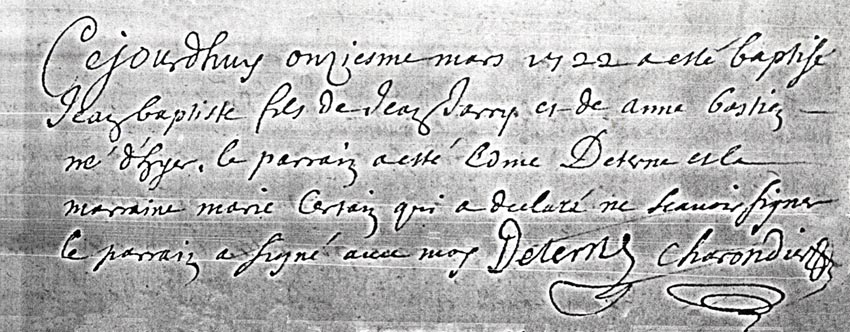 Cejourdhuy onziesme mars 1722 a esté baptisé
Jean baptiste fils de Jean Jarry et de anne bastien
né d'hyer. le parrain a esté Come Deterne et la
marraine marie Certain qui a declaré ne scavoir signer
le parrain a signé avec moy Detern Charondier